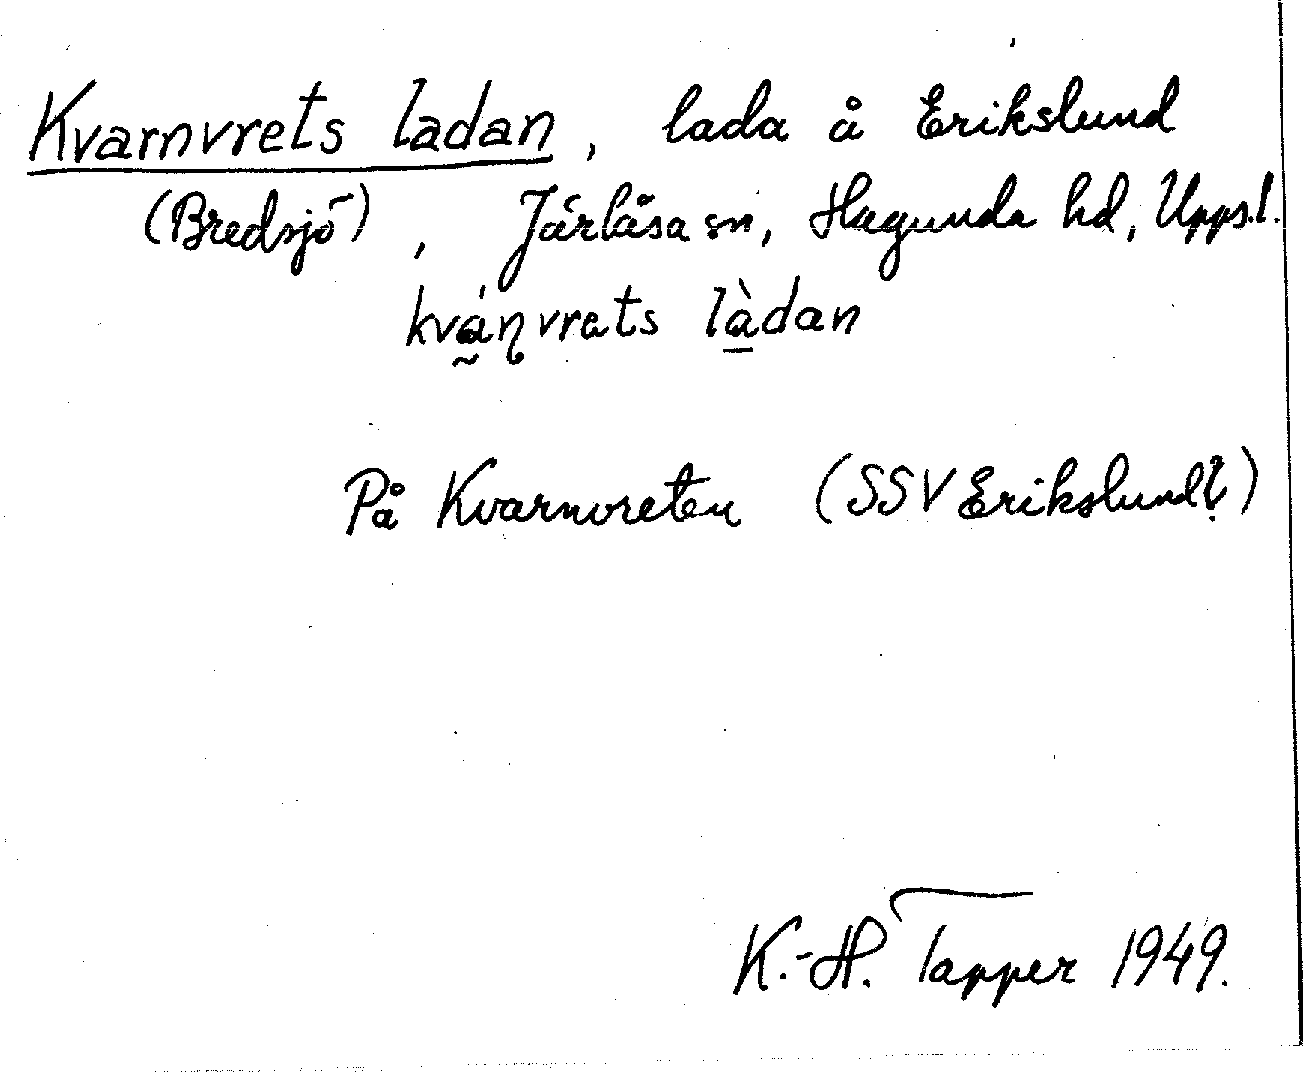 Kvarnvrets ladan, lada å Erikslund
(Bredsjö), Järlåsa sn, Hagunda hd, Upps.l.
kvá̰ɳvrets là̱dan
På Kvarnvreten (SSV Erikslund?)
K.-H. Tapper 1949.